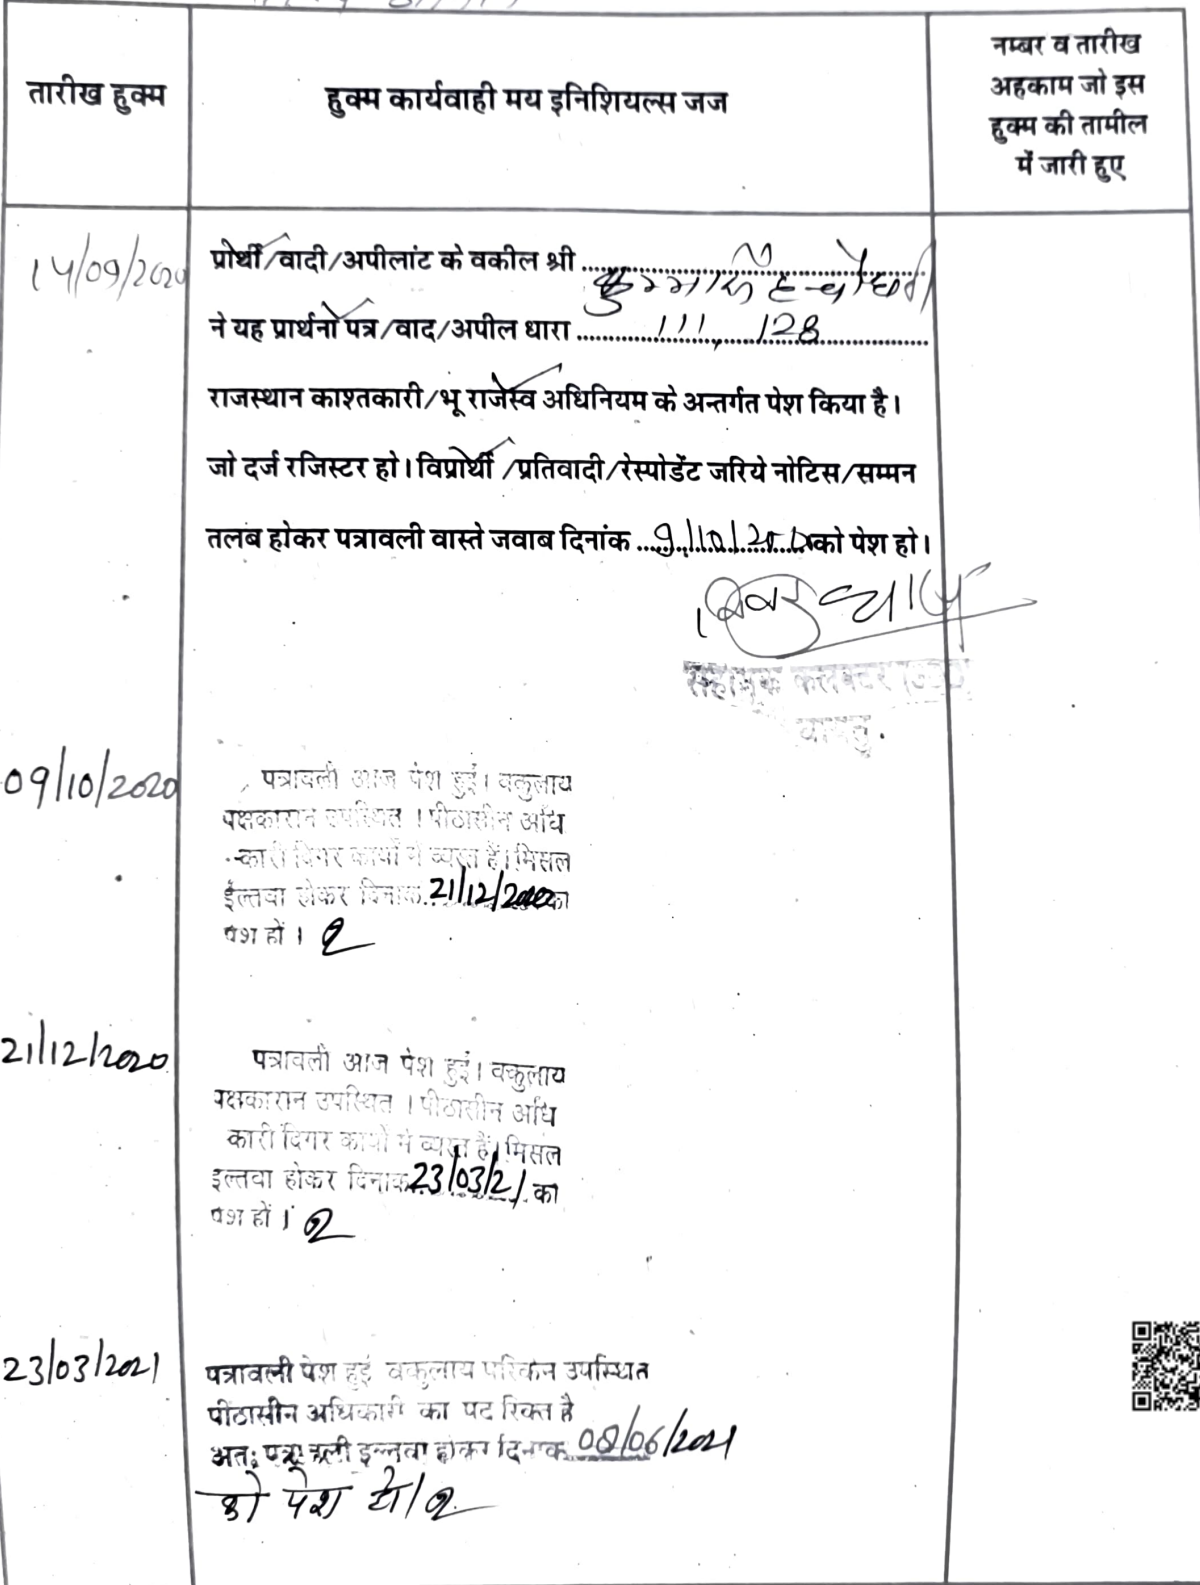 तारीख हुक्म
हुक्म कार्यवाही मय इनिशियल्स जज
नम्बर व तारीख
अहकाम जो इस
हुक्म की तामील
में जारी हुए
14/09/2020
प्रार्थी/वादी/अपीलांट के वकील श्री
ने यह प्रार्थना पत्र/वाद/अपील धारा 111, 128
राजस्थान काश्तकारी/भू राजस्व अधिनियम के अन्तर्गत पेश किया है।
जो दर्ज रजिस्टर हो। विप्रार्थी/प्रतिवादी/रेस्पोडेंट जरिये नोटिस/सम्मन
तलब होकर पत्रावली वास्ते जवाब दिनांक 9/10/2020 को पेश हो।
सहायक कलक्टर
09/10/2020
पत्रावली आज पेश हुई। वकुलाय
पक्षकारान उपस्थित । पीठासीन अधि
-कारी दिगर कार्यो में व्यस्त हैं। मिसल
ईल्तवा होकर दिनांक 21/12/2020 को
पेश हों ।
21/12/2020
पत्रावली आज पेश हुई। वकुलाय
पक्षकारान उपस्थित । पीठासीन अधि
कारी दिगर कार्यो में व्यस्त हैं। मिसल
इल्तवा होकर दिनांक 23/03/21 को
पेश हों ।
23/03/2021
पत्रावली पेश हुई वकुलाय उपस्थित
पीठासीन अधिकारी का पद रिक्त है
अतः पत्रावली इल्तवा होकर दिनांक 08/06/2021
को पेश हो।